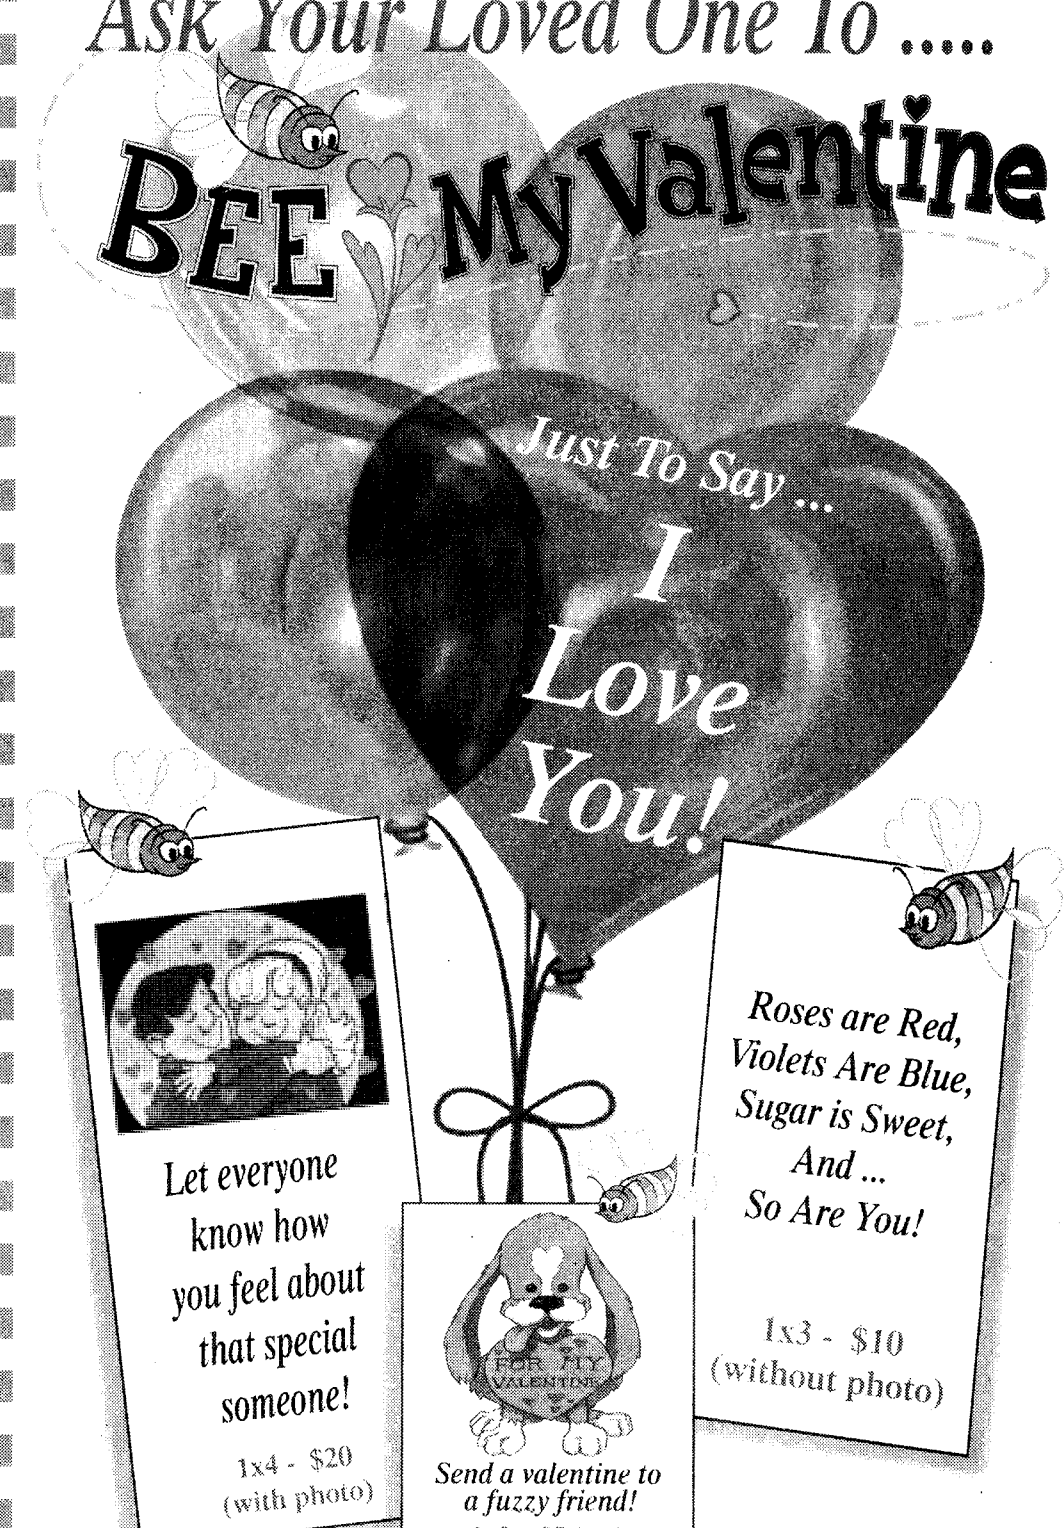 Ask Your Loved One To .....
BEE My Valentine
Just To Say ...
I
Love
You!
Let everyone
know how
you feel about
that special
someone!
1x4 - $20
(with photo)
FOR MY
VALENTINE
Send a valentine to
a fuzzy friend!
Roses are Red,
Violets Are Blue,
Sugar is Sweet,
And ...
So Are You!
1x3 - $10
(without photo)